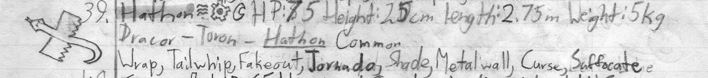 39. Hathon HP:75 Height:25cm length:2.75m Weight:5kg
Dracor - Toron - Hathon Common
Wrap, Tailwhip, Fakeout, Tornado, Shade, Metal wall, Curse, Suffocate